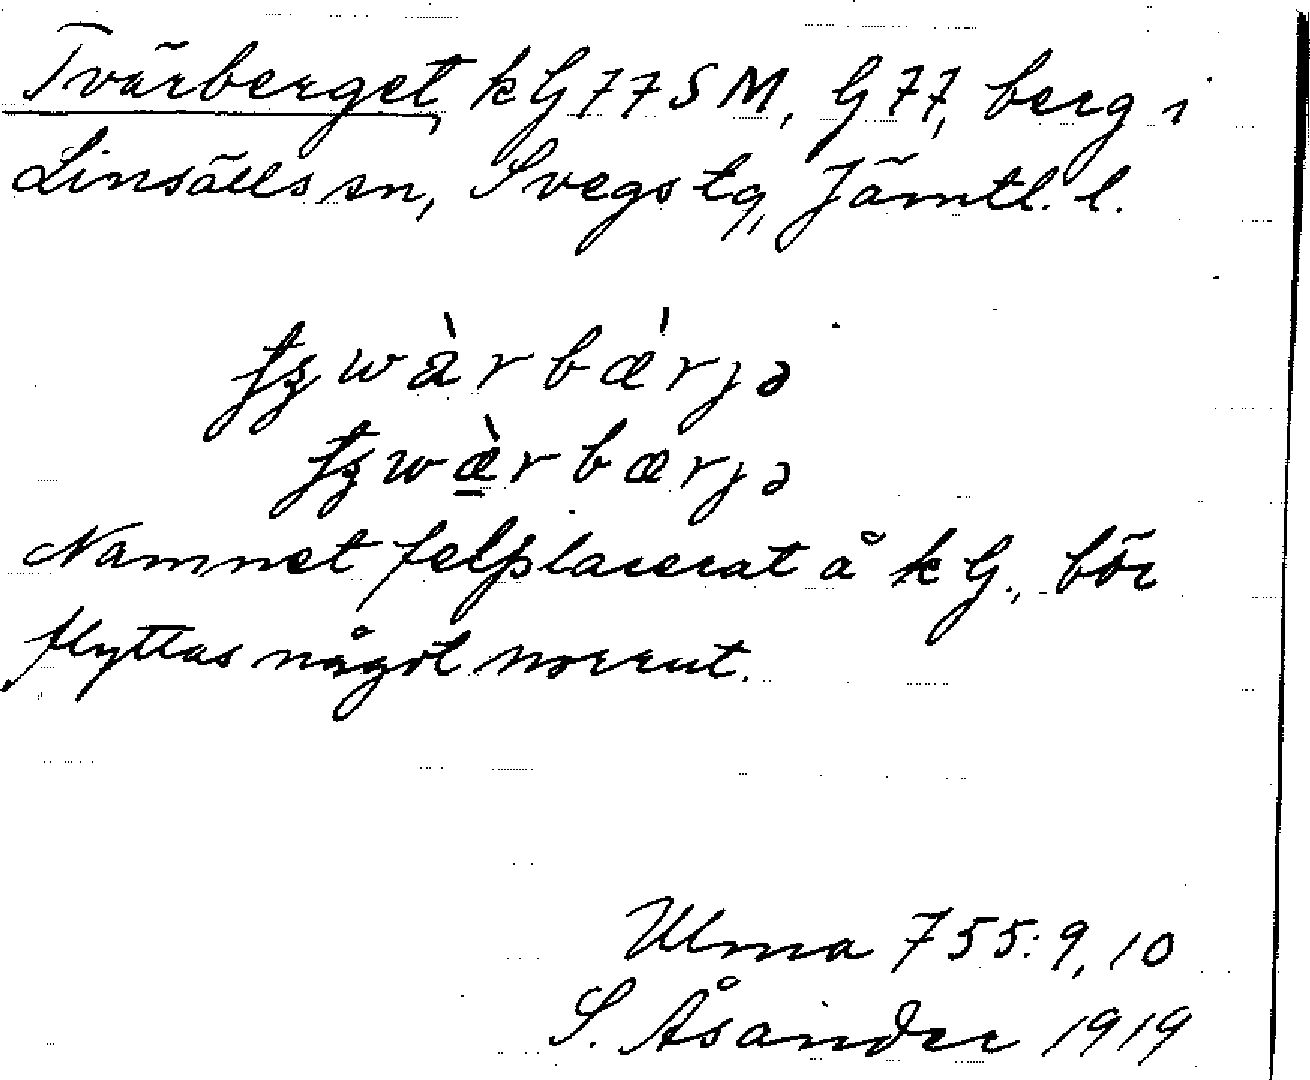 Tvärberget, kG 77 SM, G 77, berg i
Linsälls sn, Svegs tg, Jämtl. l.
wàrbǽrjə
wæ̀rbærjə
Namnet felplacerat å kG., bör
flyttas något norrut.
Ulma 755: 9, 10
S. Åsander 1919